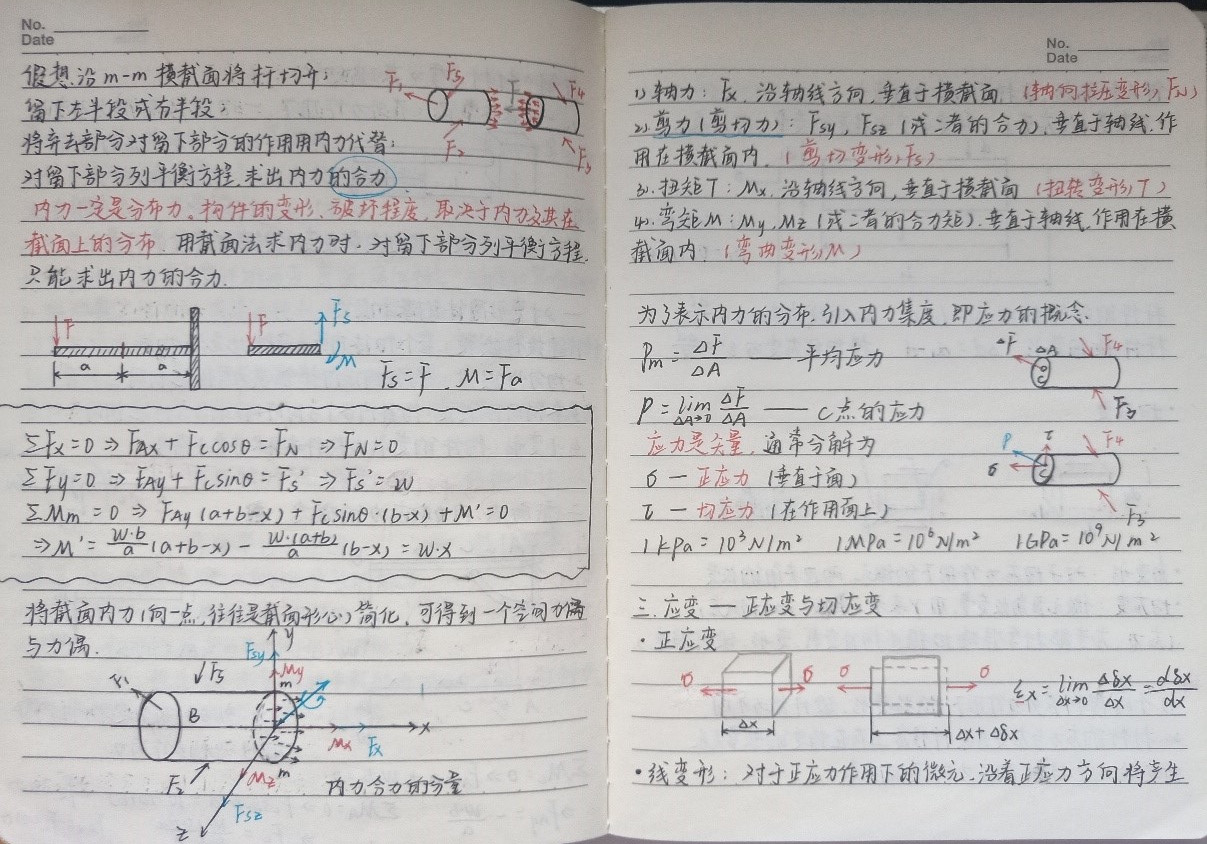 No.
Date
假想沿m-m横截面将杆切开;
留下左半段或右半段;
将弃去部分对留下部分的作用用内力代替;
对留下部分列平衡方程,求出内力的合力
F₁ F₅ F₂ F₄ F₃
内力一定是分布力。构件的变形、破坏程度,取决于内力及其在
截面上的分布. 用截面法求内力时,对留下部分列平衡方程,
只能求出内力的合力.
F a a F Fs M
Fs=F, M=Fa
ΣFx=0 ⇒ FAx + Fc cosθ = FN ⇒ FN=0
ΣFy=0 ⇒ FAy + Fc sinθ = Fs' ⇒ Fs'=W
ΣMm=0 ⇒ FAy(a+b-x) + Fc sinθ·(b-x) + M'=0
⇒M'= W·b/a (a+b-x) - W·(a+b)/a (b-x) = W·x
将截面内力(向一点,往往是截面形心)简化,可得到一个空间力偶
与力偶.
y Fsy My m F₅ F₁ B Mx Fx x Mz m F₂ Fsz z
内力合力的分量
No.
Date
1).轴力: Fx, 沿轴线方向,垂直于横截面 (轴向拉压变形,FN)
2).剪力(剪切力): Fsy, Fsz (或二者的合力),垂直于轴线,作
用在横截面内. (剪切变形,Fs)
3).扭矩T: Mx, 沿轴线方向,垂直于横截面 (扭转变形,T)
4).弯矩M: My, Mz (或二者的合力矩),垂直于轴线,作用在横
截面内. (弯曲变形,M)
为了表示内力的分布,引入内力集度,即应力的概念.
Pm = ΔF/ΔA —— 平均应力
ΔF ΔA C F₄ F₃
P = lim ΔA→0 ΔF/ΔA —— C点的应力
应力是矢量, 通常分解为
σ — 正应力 (垂直于面)
τ — 切应力 (在作用面上)
P τ σ C F₄ F₃
1kPa=10³N/m² 1MPa=10⁶N/m² 1GPa=10⁹N/m²
三. 应变 — 正应变与切应变
·正应变
σ σ Δx σ σ Δx+Δδx
εx = lim Δx→0 Δδx/Δx = dδx/dx
·线变形: 对于正应力作用下的微元,沿着正应力方向将产生